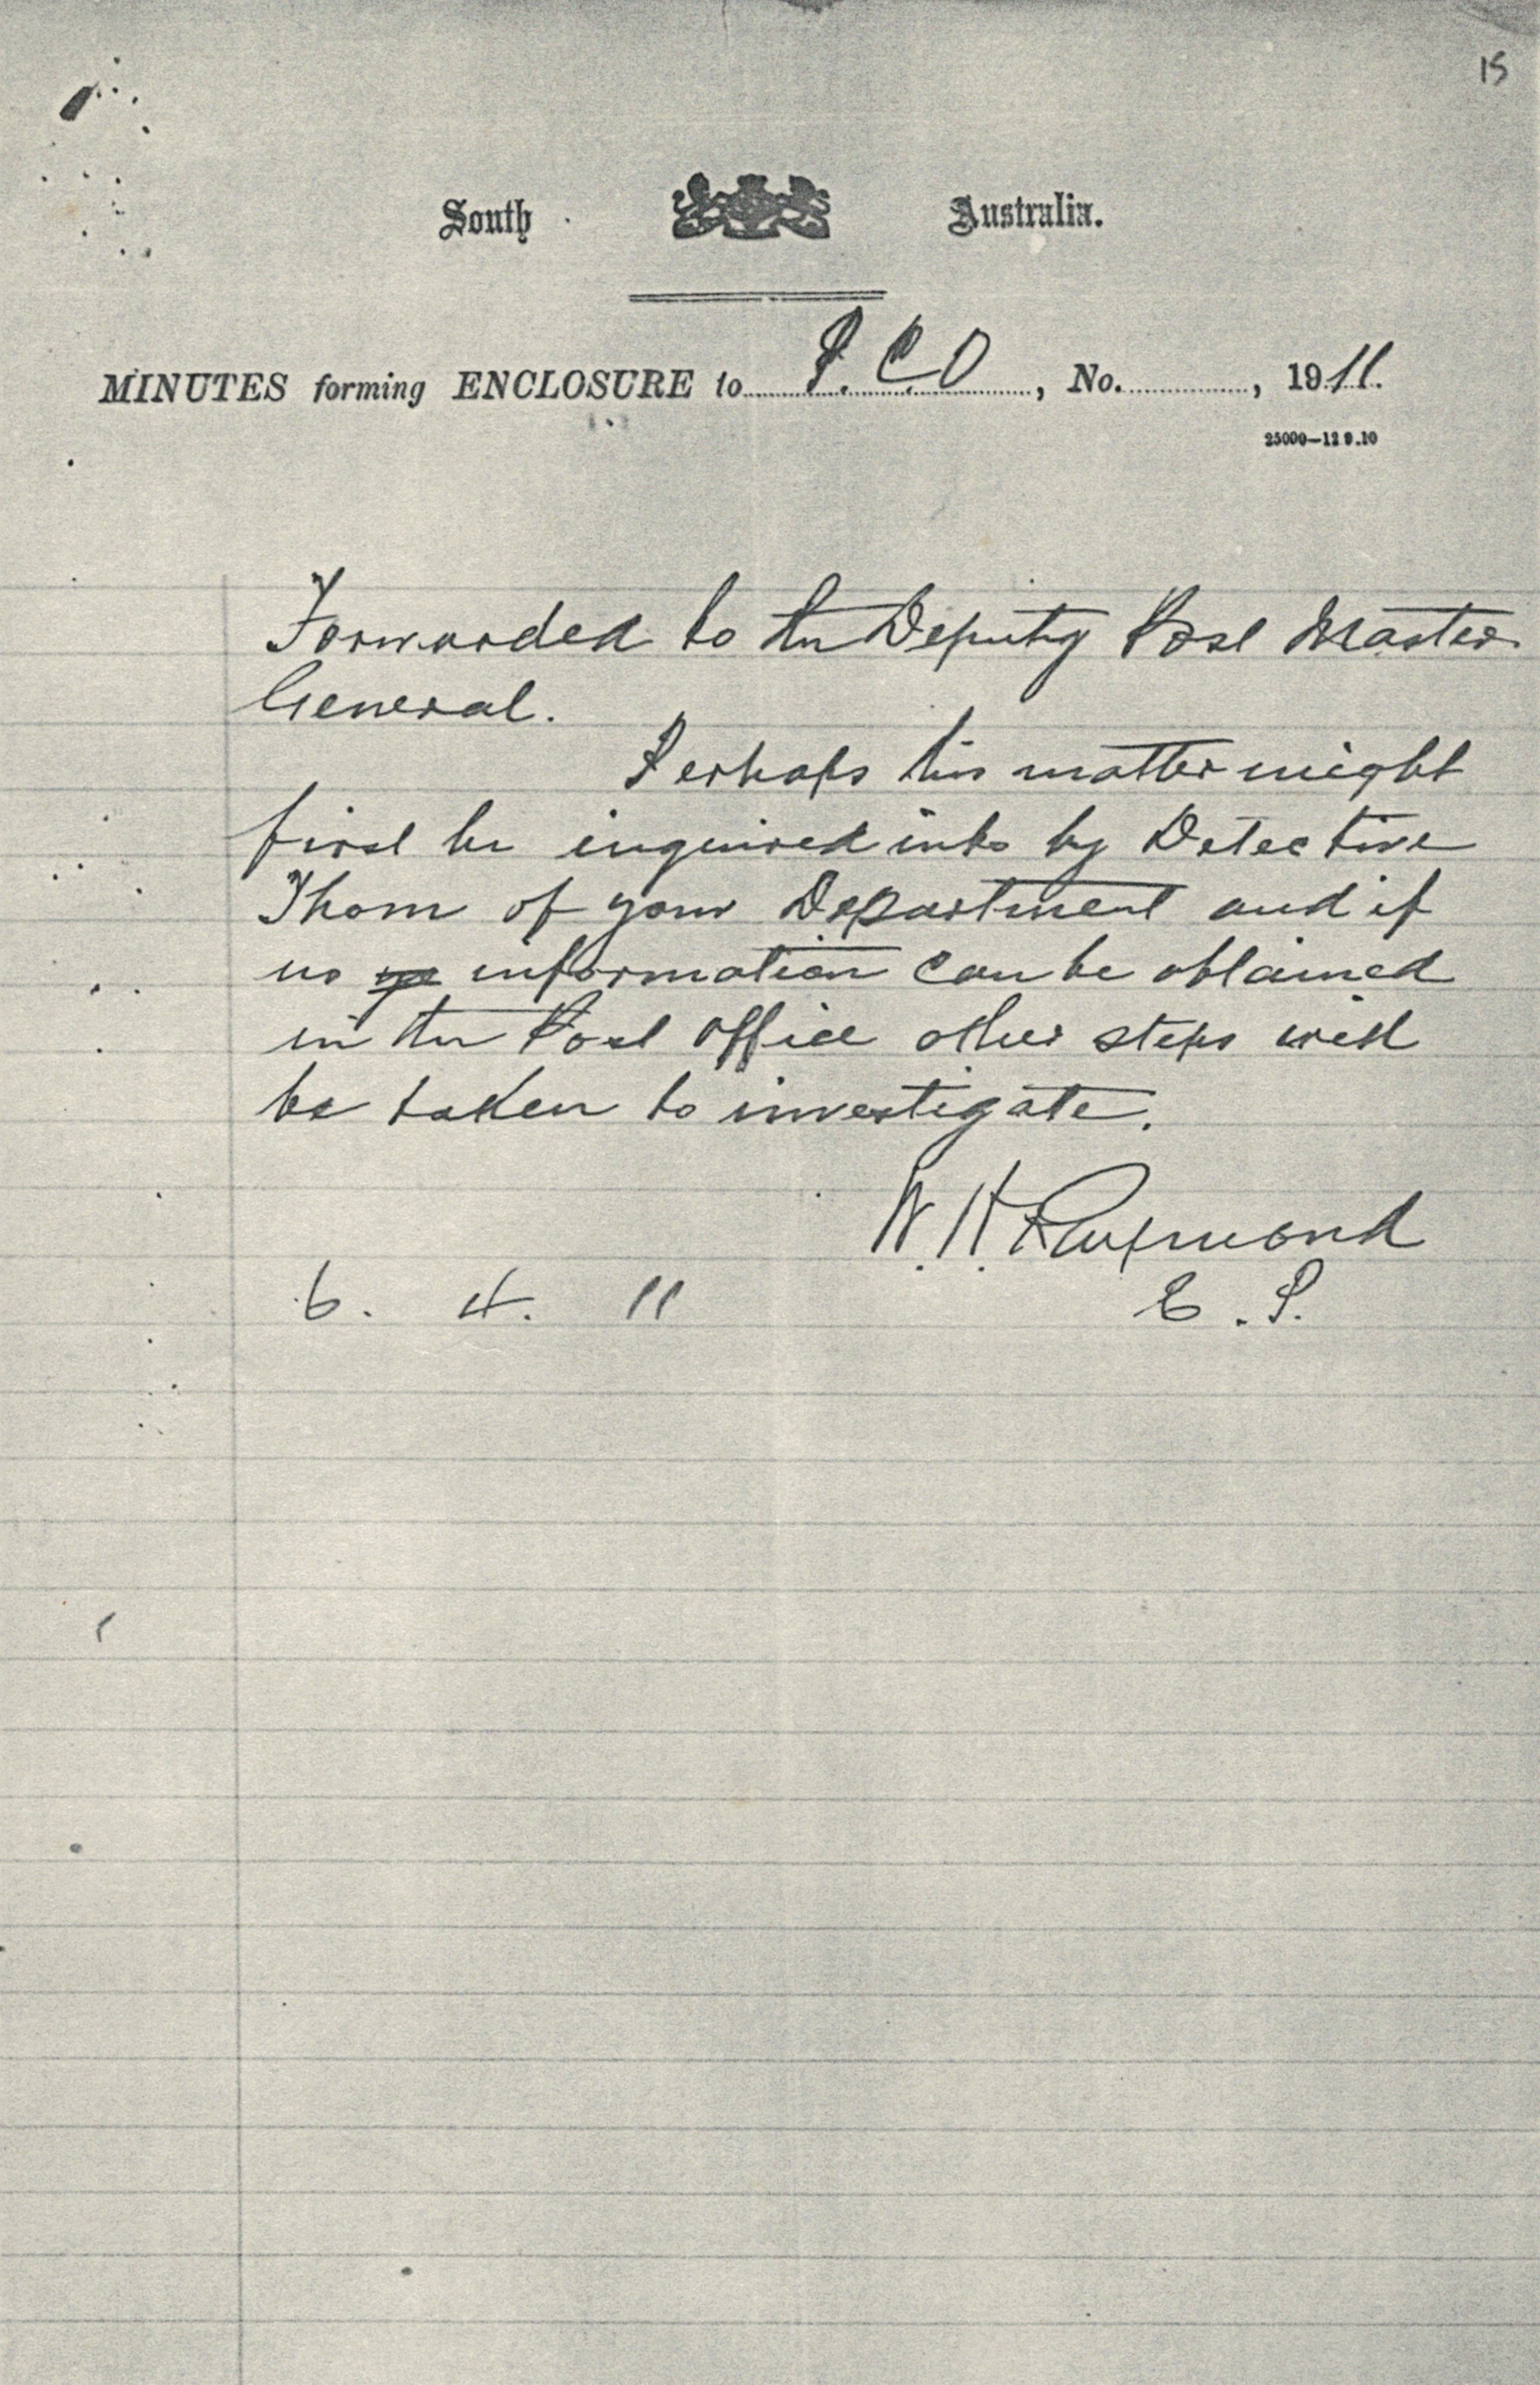 15
South Australia.
MINUTES forming ENCLOSURE to P.C.O, No. , 1911.
25000—12 9.10
Forwarded to the Deputy Post Master
General.
Perhaps this matter might
first be inquired into by Detective
Thom of your Department and if
no information can be obtained
in the Post Office other steps will
be taken to investigate.
W. H. Raymond
C. P.
6. 4. 11